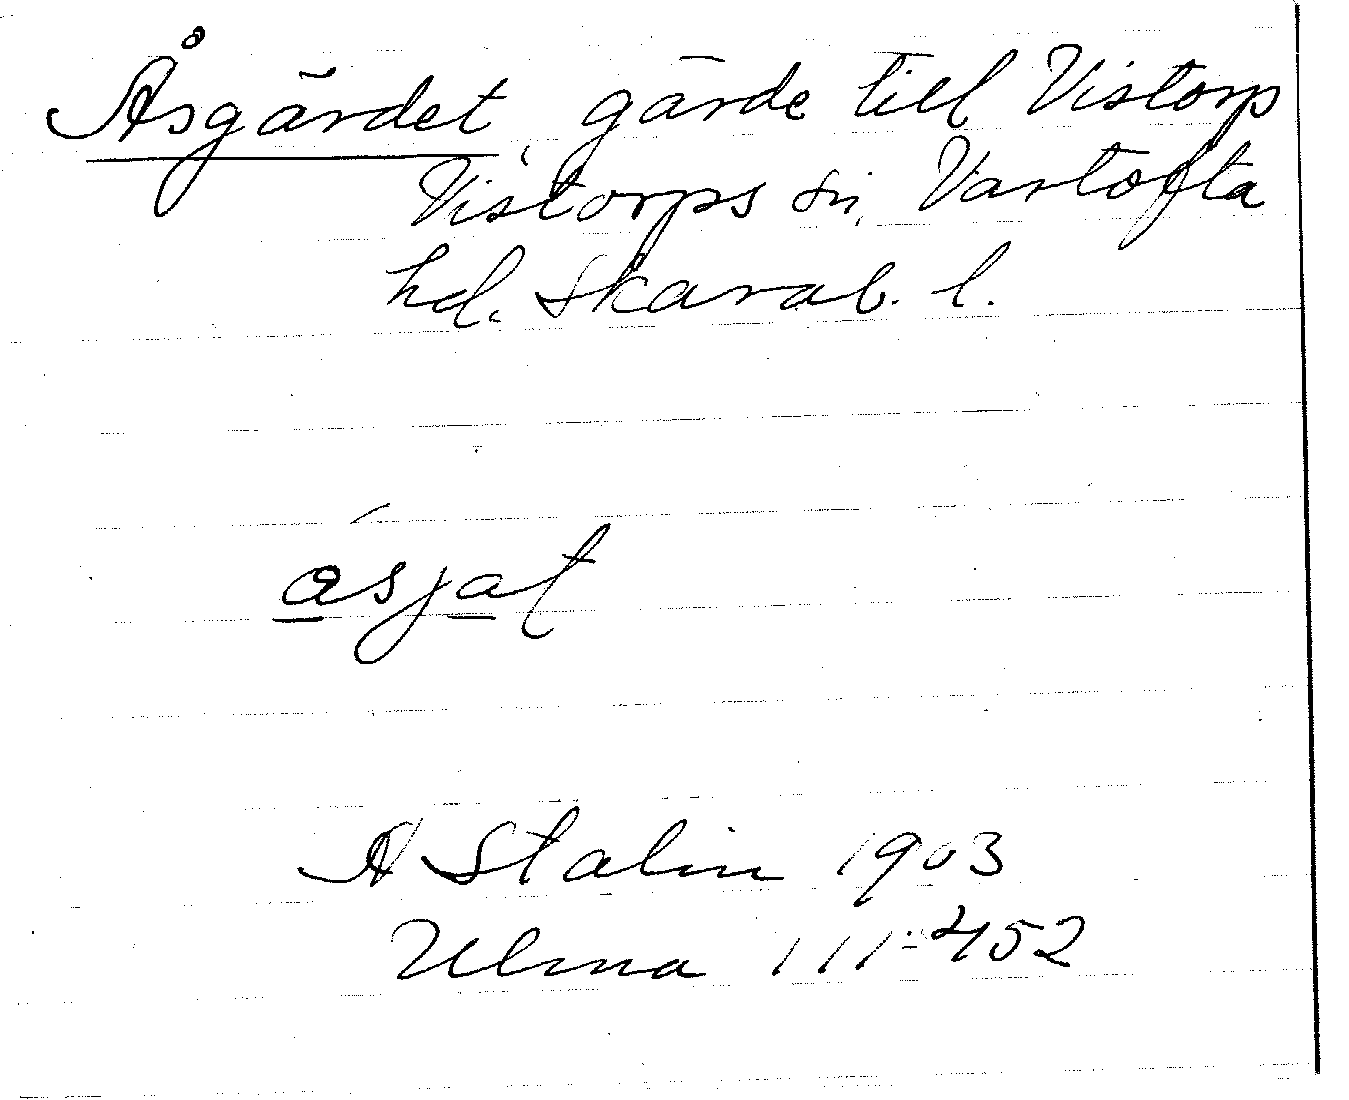 Åsgärdet, gärde till Vistorp
Vistorps sn, Vartofta
hd. Skarab. l.
ásjat
A Stalin 1903
Ulma 111:452